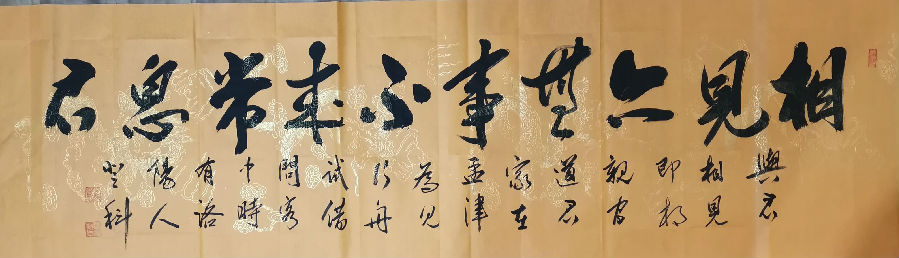 相見亦無事不来常思君
與君
相見
即相
親聞
道君
家在
孟津
為見
行舟
試借
問客
中時
有洛
陽人
登科